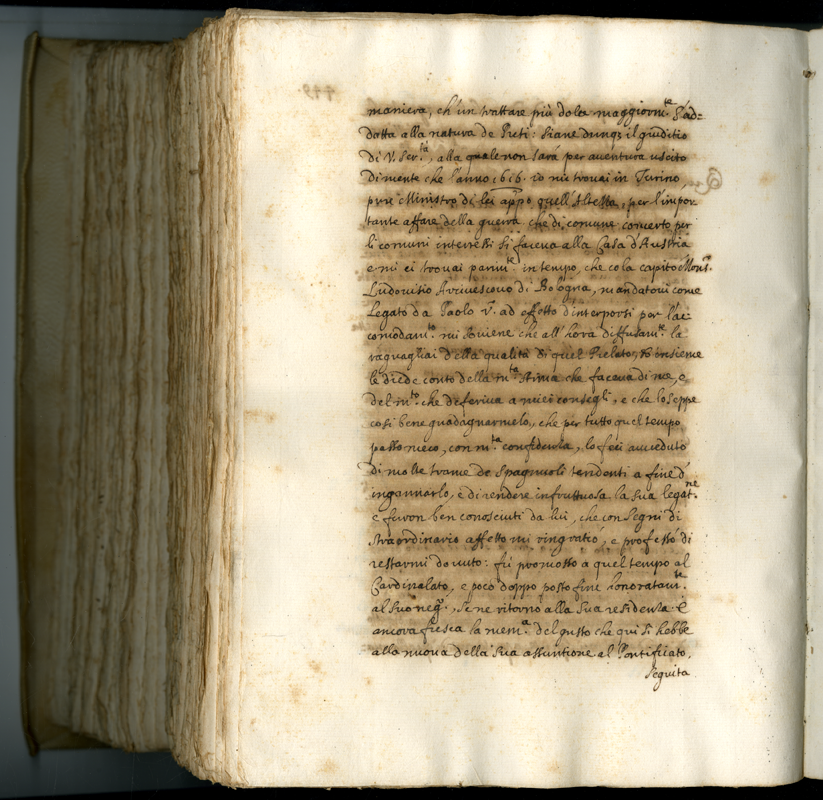 maniera, ch'un trattare più dolce maggiorm.te s'ad=
datta alla natura de Preti: siane dunq; il giuditio
di V. Ser.tà, alla quale non sarà per auentura uscito
di mente che l'anno 1616. io mi trouai in Turino,
pure Ministro di lei appo quell'Altezza, per l'impor=
tante affare della guerra che di comune concerto per
li comuni interessi si faceua alla Casa d'Austria
e mi ci trouai parim.te in tempo, che colà capitò Mons.r
Ludouisio Arciuescouo di Bologna, mandatoui come
Legato da Paolo V. ad effetto d'interporsi per l'ac=
comodam.to mi souiene che all'hora diffusam.te la
raguagliai della qualità di quel Prelato, et insieme
le diede conto della m.ta stima che faceua di me, e
del m.to che deferiua a miei consegli, e che lo seppe
così bene guadagnarmelo, che per tutto quel tempo
passò meco, con m.ta confidenza, lo feci aueduto
di molte trame de Spagnuoli tendenti a fine d'
ingannarlo, e di rendere infruttuosa la sua legat.ne
e furon ben conosciuti da lui, che con segni di
straordinario affetto mi ringratiò, e professò di
restarmi douuto: fù promosso a quel tempo al
Cardinalato, e poco doppo posto fine honoratam.te
al suo neg.o, se ne ritornò alla sua residenza. È
ancora fresca la mem.a del gusto che qui si hebbe
alla nuoua della sua assuntione al Pontificato.
Seguita